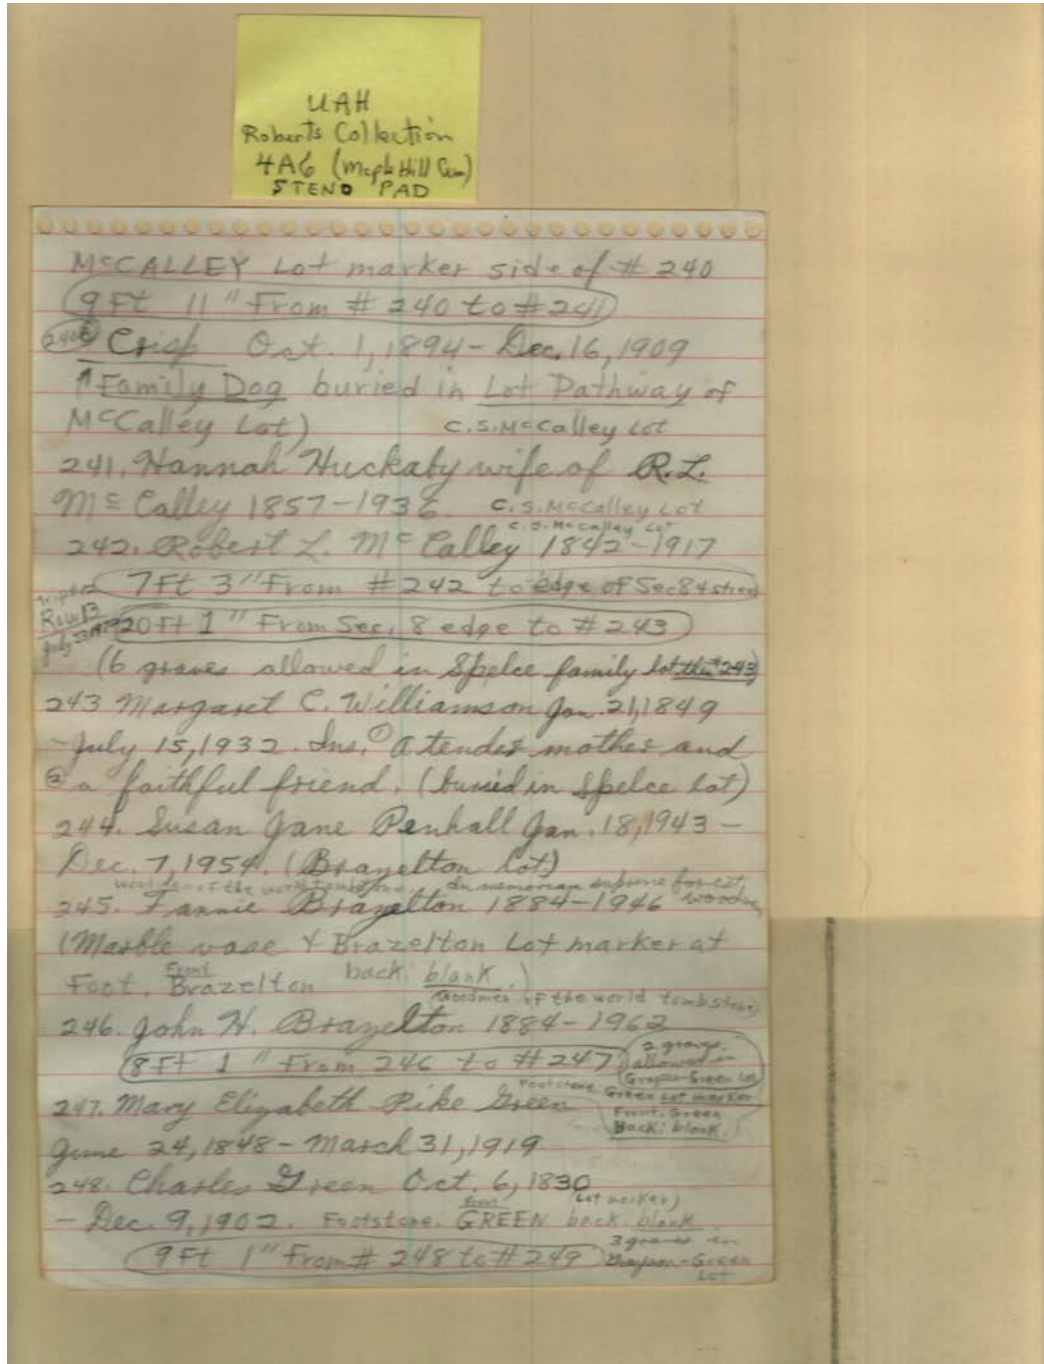 UAH
Roberts Collection
4A6 (Maple Hill Cem)
STENO PAD
McCALLEY Lot marker side of # 240
9Ft 11" From # 240 to #241
Crisp Oct. 1, 1894 - Dec. 16, 1909
↑Family Dog buried in Lot Pathway of
McCalley Lot) C.S. McCalley Lot
241. Hannah Huckaby wife of R.L.
McCalley 1857-1936 C.S. McCalley Lot
C.S. McCalley Lot
242. Robert L. McCalley 1842-1917
7Ft 3" From #242 to edge of Sec 8 + street
Row 13
20Ft 1" From Sec. 8 edge to #243
(6 graves allowed in Spelce family lot #243)
243 Margaret C. Williamson Jan. 21, 1849
- July 15, 1932. Ins. ① A tender mother and
② a faithful friend. (buried in Spelce lot)
244. Susan Jane Penhall Jan. 18, 1943 -
Dec. 7, 1954. (Brazelton Lot)
woodmen of the world tombstone. In memoriam supreme forest
245. Fannie Brazelton 1884-1946 woodmen
(Marble vase & Brazelton Lot marker at
Foot. Front Brazelton back: blank.)
Woodmen of the world tombstone)
246. John H. Brazelton 1884-1962
8Ft 1" From 246 to #247
2 graves
allowed in
-Green Lot
Footstone: Green Lot marker
247. Mary Elizabeth Pike Green
Front. Green
Back: blank.
June 24, 1848 - March 31, 1919
248. Charles Green Oct. 6, 1830
(Lot marker)
- Dec. 9, 1902. Footstone. Front GREEN back. blank
9Ft 1" From # 248 to #249
3 graves in
Grayson-Green
Lot